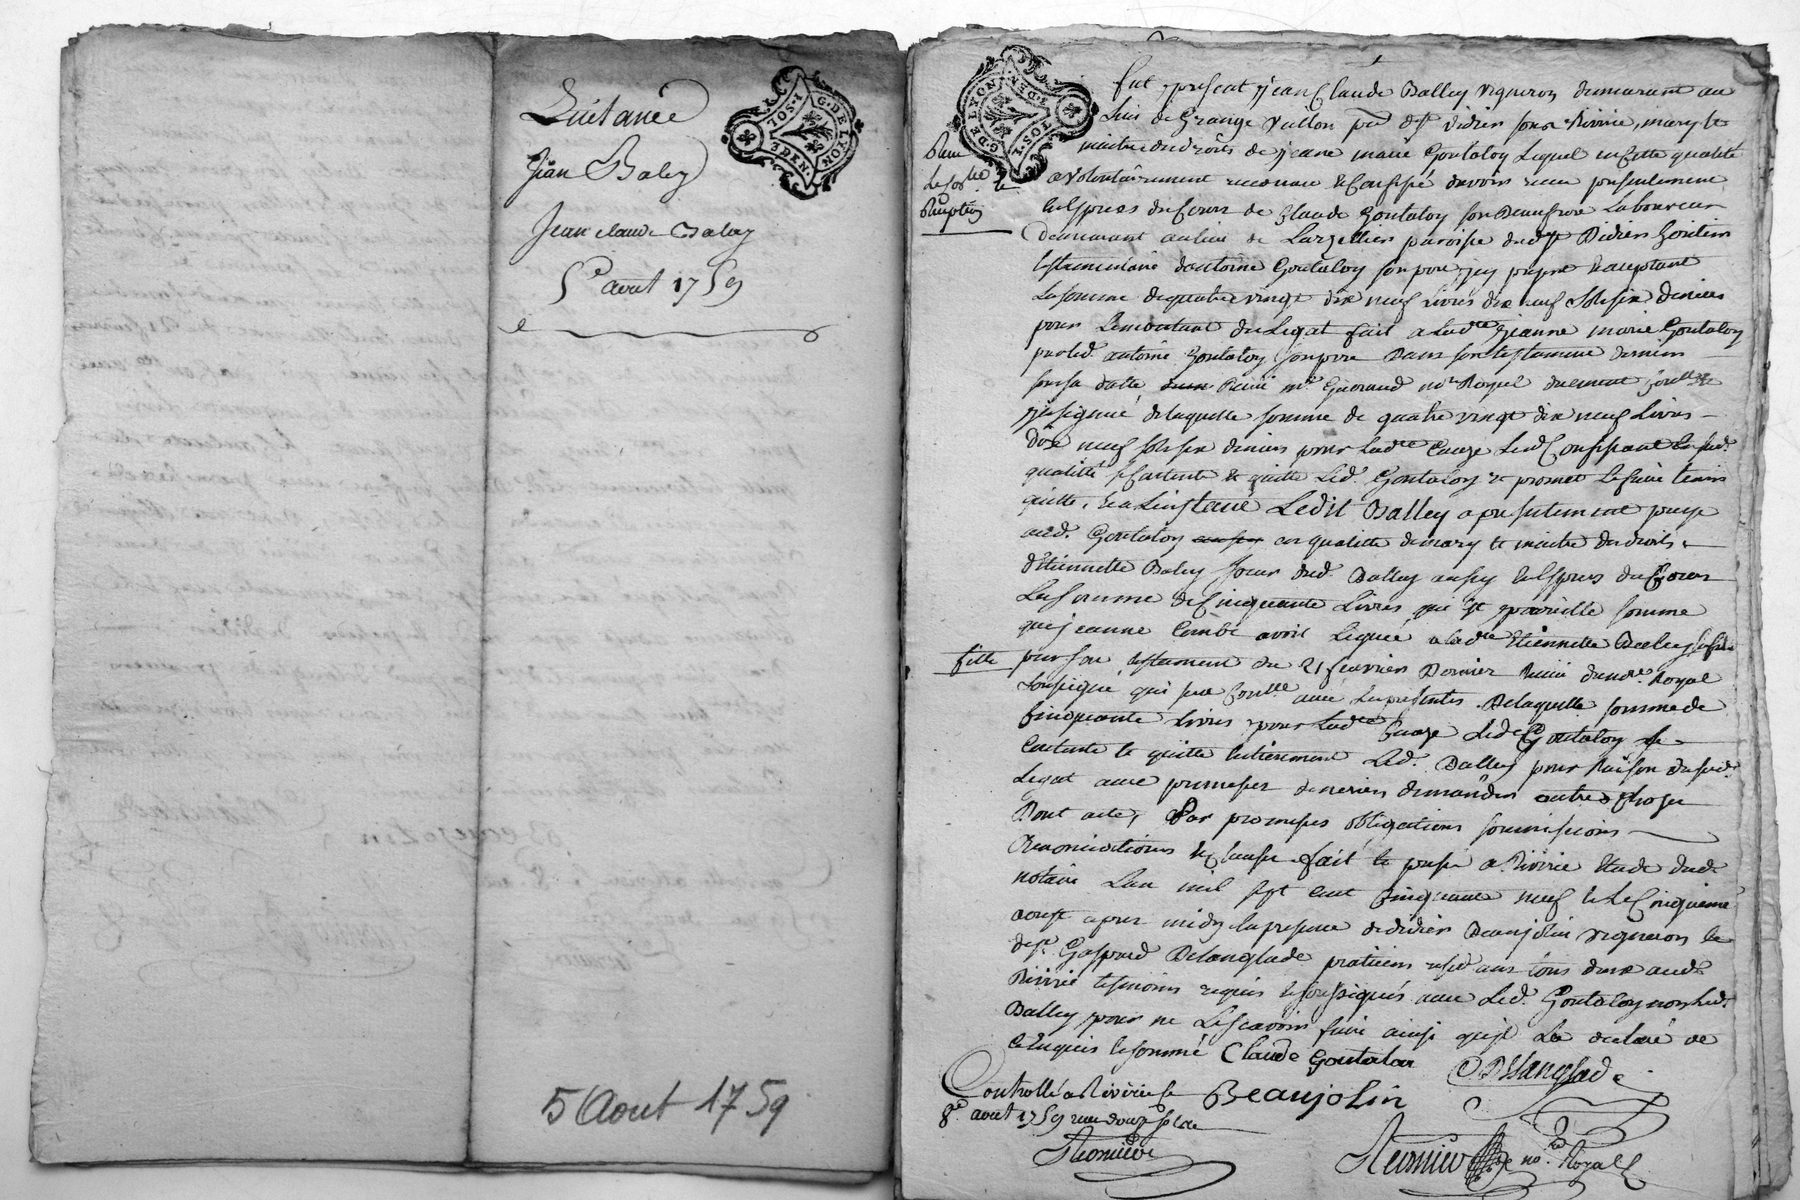 Quitance
Jean Baley
Jean claude Baley
5e aout 1759
G. DE LYON
1. SOL.
5 Aout 1759
G. DE LYON
1 SOL.
fut present Jean Claude Balley vigneron demeurant au
lieu de Grange Vallon de St didier sous Rivirie, mary &
maitre des droits de jeane marie Goutaloy Lequel en cette qualité
a volontairement reconnu & confessé d'avoir receu presentement
en espces du Cours de Claude Goutaloy son Beaufrere Laboureur
demeurant au lieu de Larzellier paroisse dud St Didier
d'antoine Goutaloy son pere jcy present & acceptant
La somme de quatre vingt dix neuf Livres dix neuf sols six deniers
pour Le montant du Legat fait a Lad.te Jeanne marie Goutaloy
par led. antoine Goutaloy son pere Dans son testament dernier
sous sa datte Receu me not.re Royal
soussigné de laquelle somme de quatre vingt dix neuf Livres
dix neuf sols six deniers pour Lad.te Cauze Led. Confessant
qualitté se contente & quitte Led. Goutaloy & promet Le faire tenir
quitte, & a L'instant Ledit Balley a presentement payé
aud. Goutaloy en qualitté de mary & maitre des droits
d'Etiennette Baley soeur dud. Balley aussy en espces du Cours
La somme de Cinquante Livres qui est pareille somme
que jeanne Combe avoit Leguée a lad.te Etiennette Baley
fille par son testament du 21 fevrier Dernier Receu du no.re Royal
soussigné qui sera Con.lle avec Les presentes. De laquelle somme de
Cinquante Livres pour Lad.te Cauze Led. Goutaloy se
Contente & quitte Entierement Led. Balley pour Raison dud.
Legat avec promesse de ne rien demander autre chose
Dont acte, Par promesses obligations soumissions
Renonciations & clauses fait & passé a Rivirie Etude dud.
notaire L'an mil sept cent Cinquante neuf & le Cinquieme
aoust apres midy En presence de didier Beaujolin vigneron &
de Sr. Gaspard Delanglade praticien tous deux aud.
Rivirie temoins requis & soussignés avec Led. Goutaloy non Led.
Balley pour ne Le scavoir faire ainsi qu'il La declaré de
ce Enquis & sommé Claude Goutaloy Delanglade
Controllé a Rivirie le Beaujolin
8e aout 1759 recu douze sols
no.re Royal